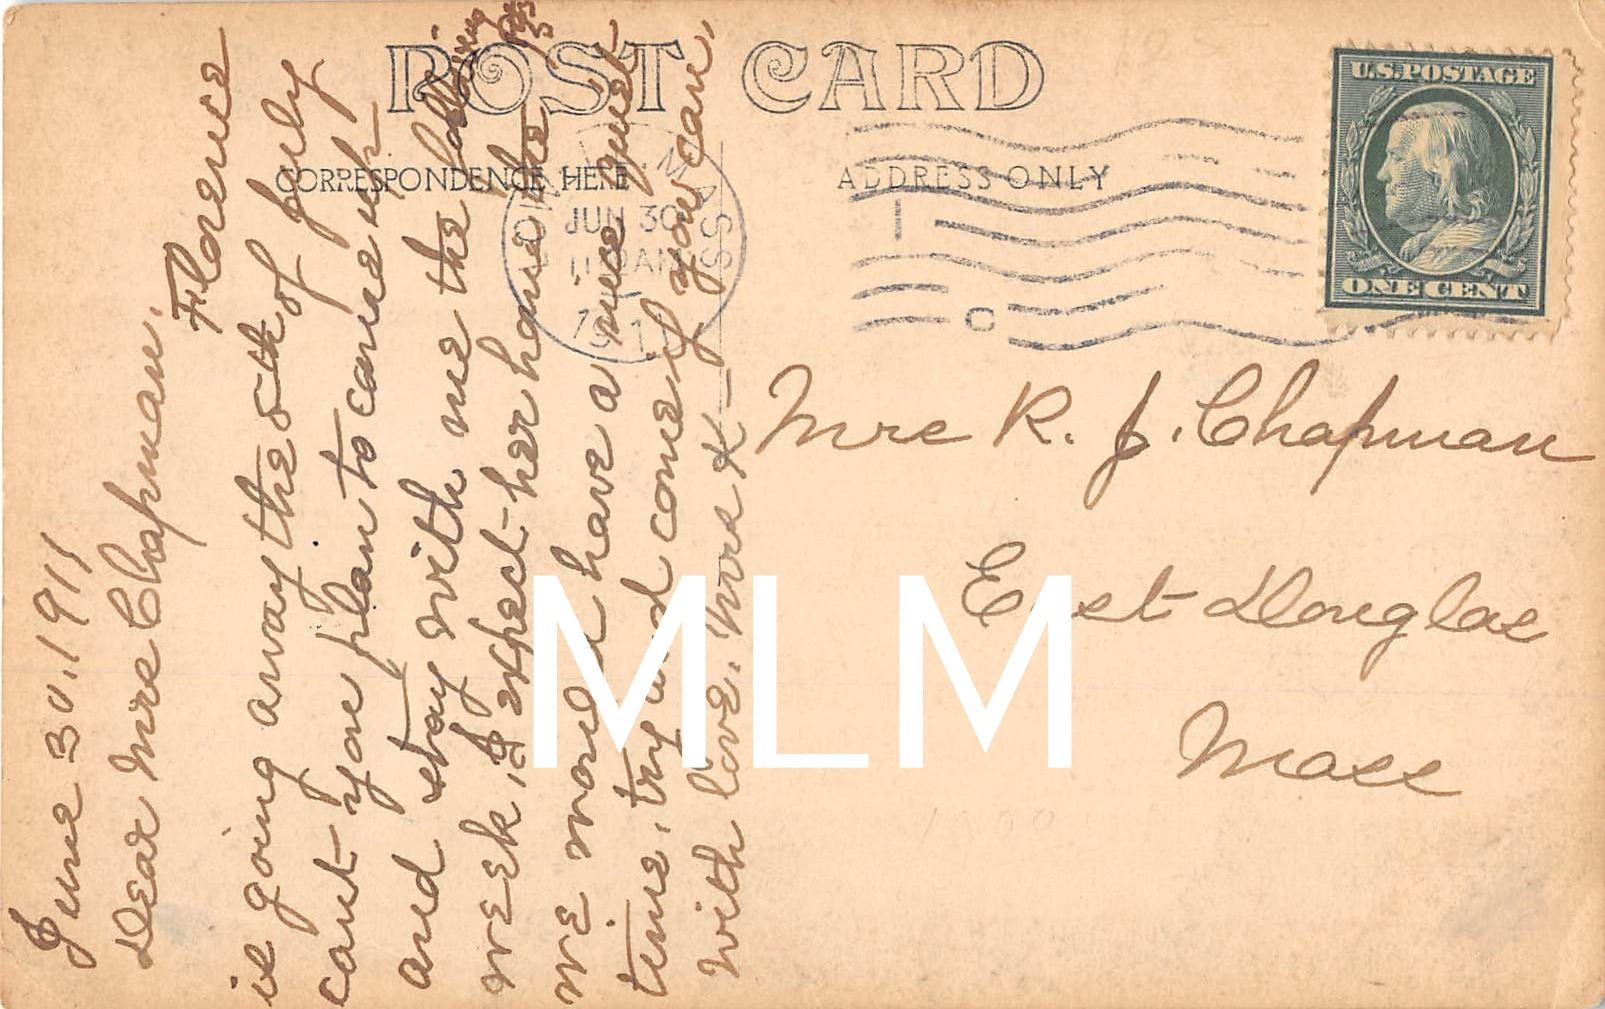 POST CARD
CORRESPONDENCE HERE
ADDRESS ONLY
MASS
JUN 30
11 AM
1911
C
U.S. POSTAGE
ONE CENT
June 30, 1911
Dear Mrs Chapman,
Florence
is going away the 5th of July
cant you plan to come up
and stay with me the following
week, I expect her home the
we would have a nice quiet
time, try and come if you can,
with love, Mrs K—
Mrs R. J. Chapman
East Douglas
Mass
MLM